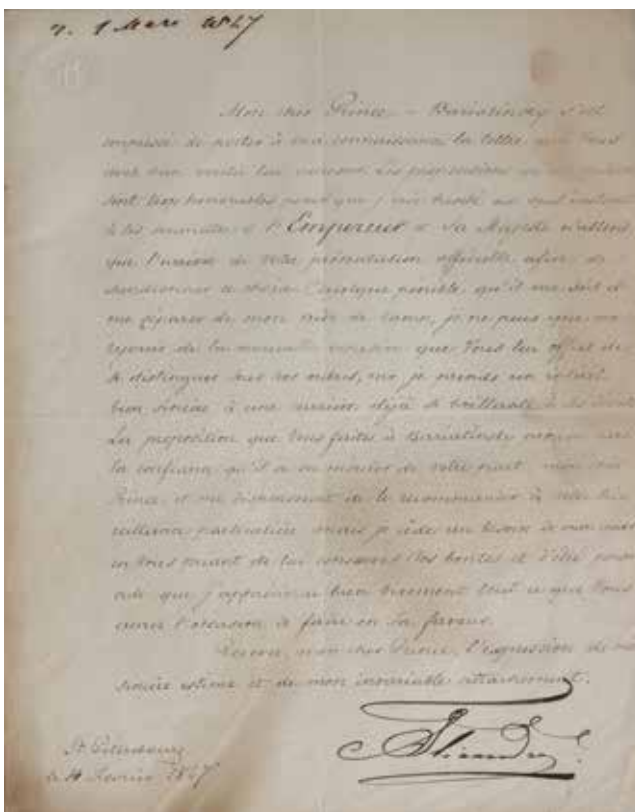 1 Mars 1847
Mon cher Prince, – Bariatinsky s'est
empressé de porter à ma connaissance la lettre que Vous
avez bien voulu lui
sont trop honorables pour que j'aie hésité un seul instant
à les soumettre à l'Empereur & Sa Majesté n'attend
que l'arrivée de votre présentation officielle afin de
Quelque pénible qu'il me soit de
me séparer de mon aide de camp, je ne puis que me
réjouir de la nouvelle occasion que Vous lui offrez de
se distinguer sous vos ordres, car je prends un intérêt
bien sincère à une carrière déjà si brillante à ses débuts
La proposition que Vous faites à Bariatinsky
la confiance qu'il a su mériter de votre part, mon cher
Prince, et me de le recommander à votre bien
veillance particulière mais je cède au besoin de mon cœur
en Vous priant de lui conserver Vos bontés et d'être
que j'apprécierai bien vivement tout ce que Vous
aurez l'occasion de faire en sa faveur.
Recevez, mon cher Prince, l'expression de ma
sincère estime et de mon invariable attachement.
Alexandre
St. Pétersbourg
le Février 1847